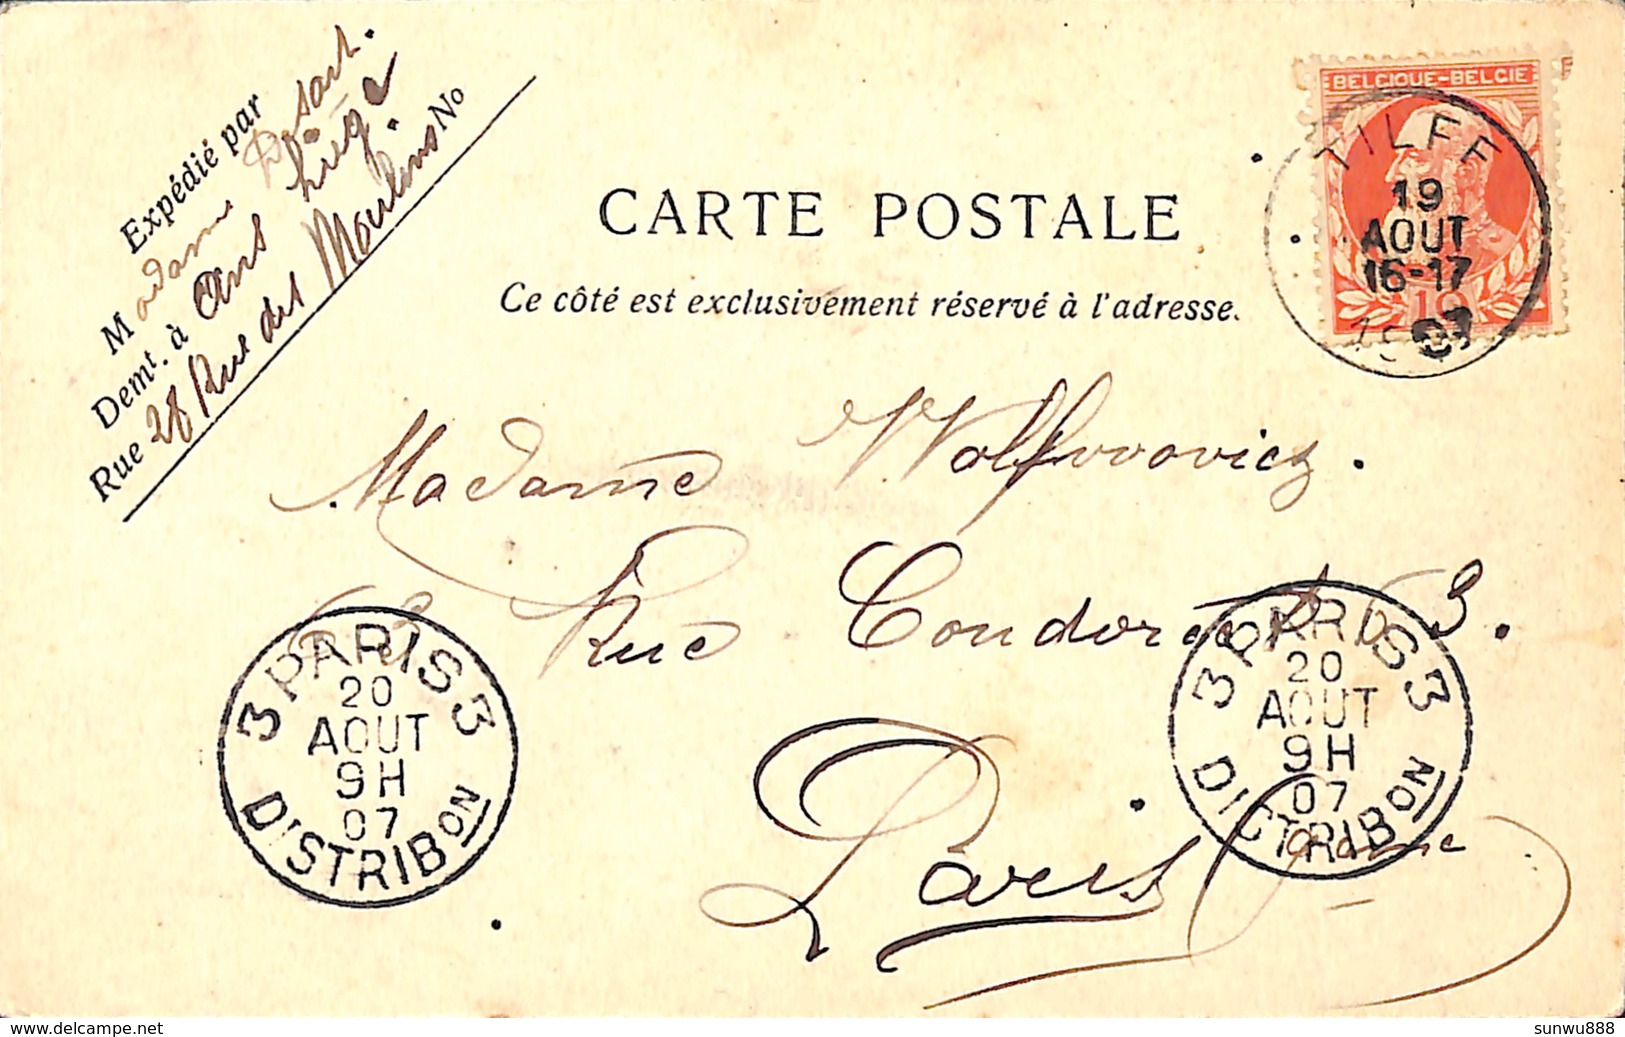 Expédié par
Madame Desart.
Demt. à Ans Liège
Rue 28 Rue des Moulins No
BELGIQUE-BELGIE
10
TILFF
19
AOUT
16-17
07
CARTE POSTALE
Ce côté est exclusivement réservé à l'adresse.
Madame
Rue Condorcet 53.
Paris
3 PARIS 3
20
AOUT
9H
07
DISTRIBON
3 PARIS 3
20
AOUT
9H
07
DISTRIBON
sunwu888